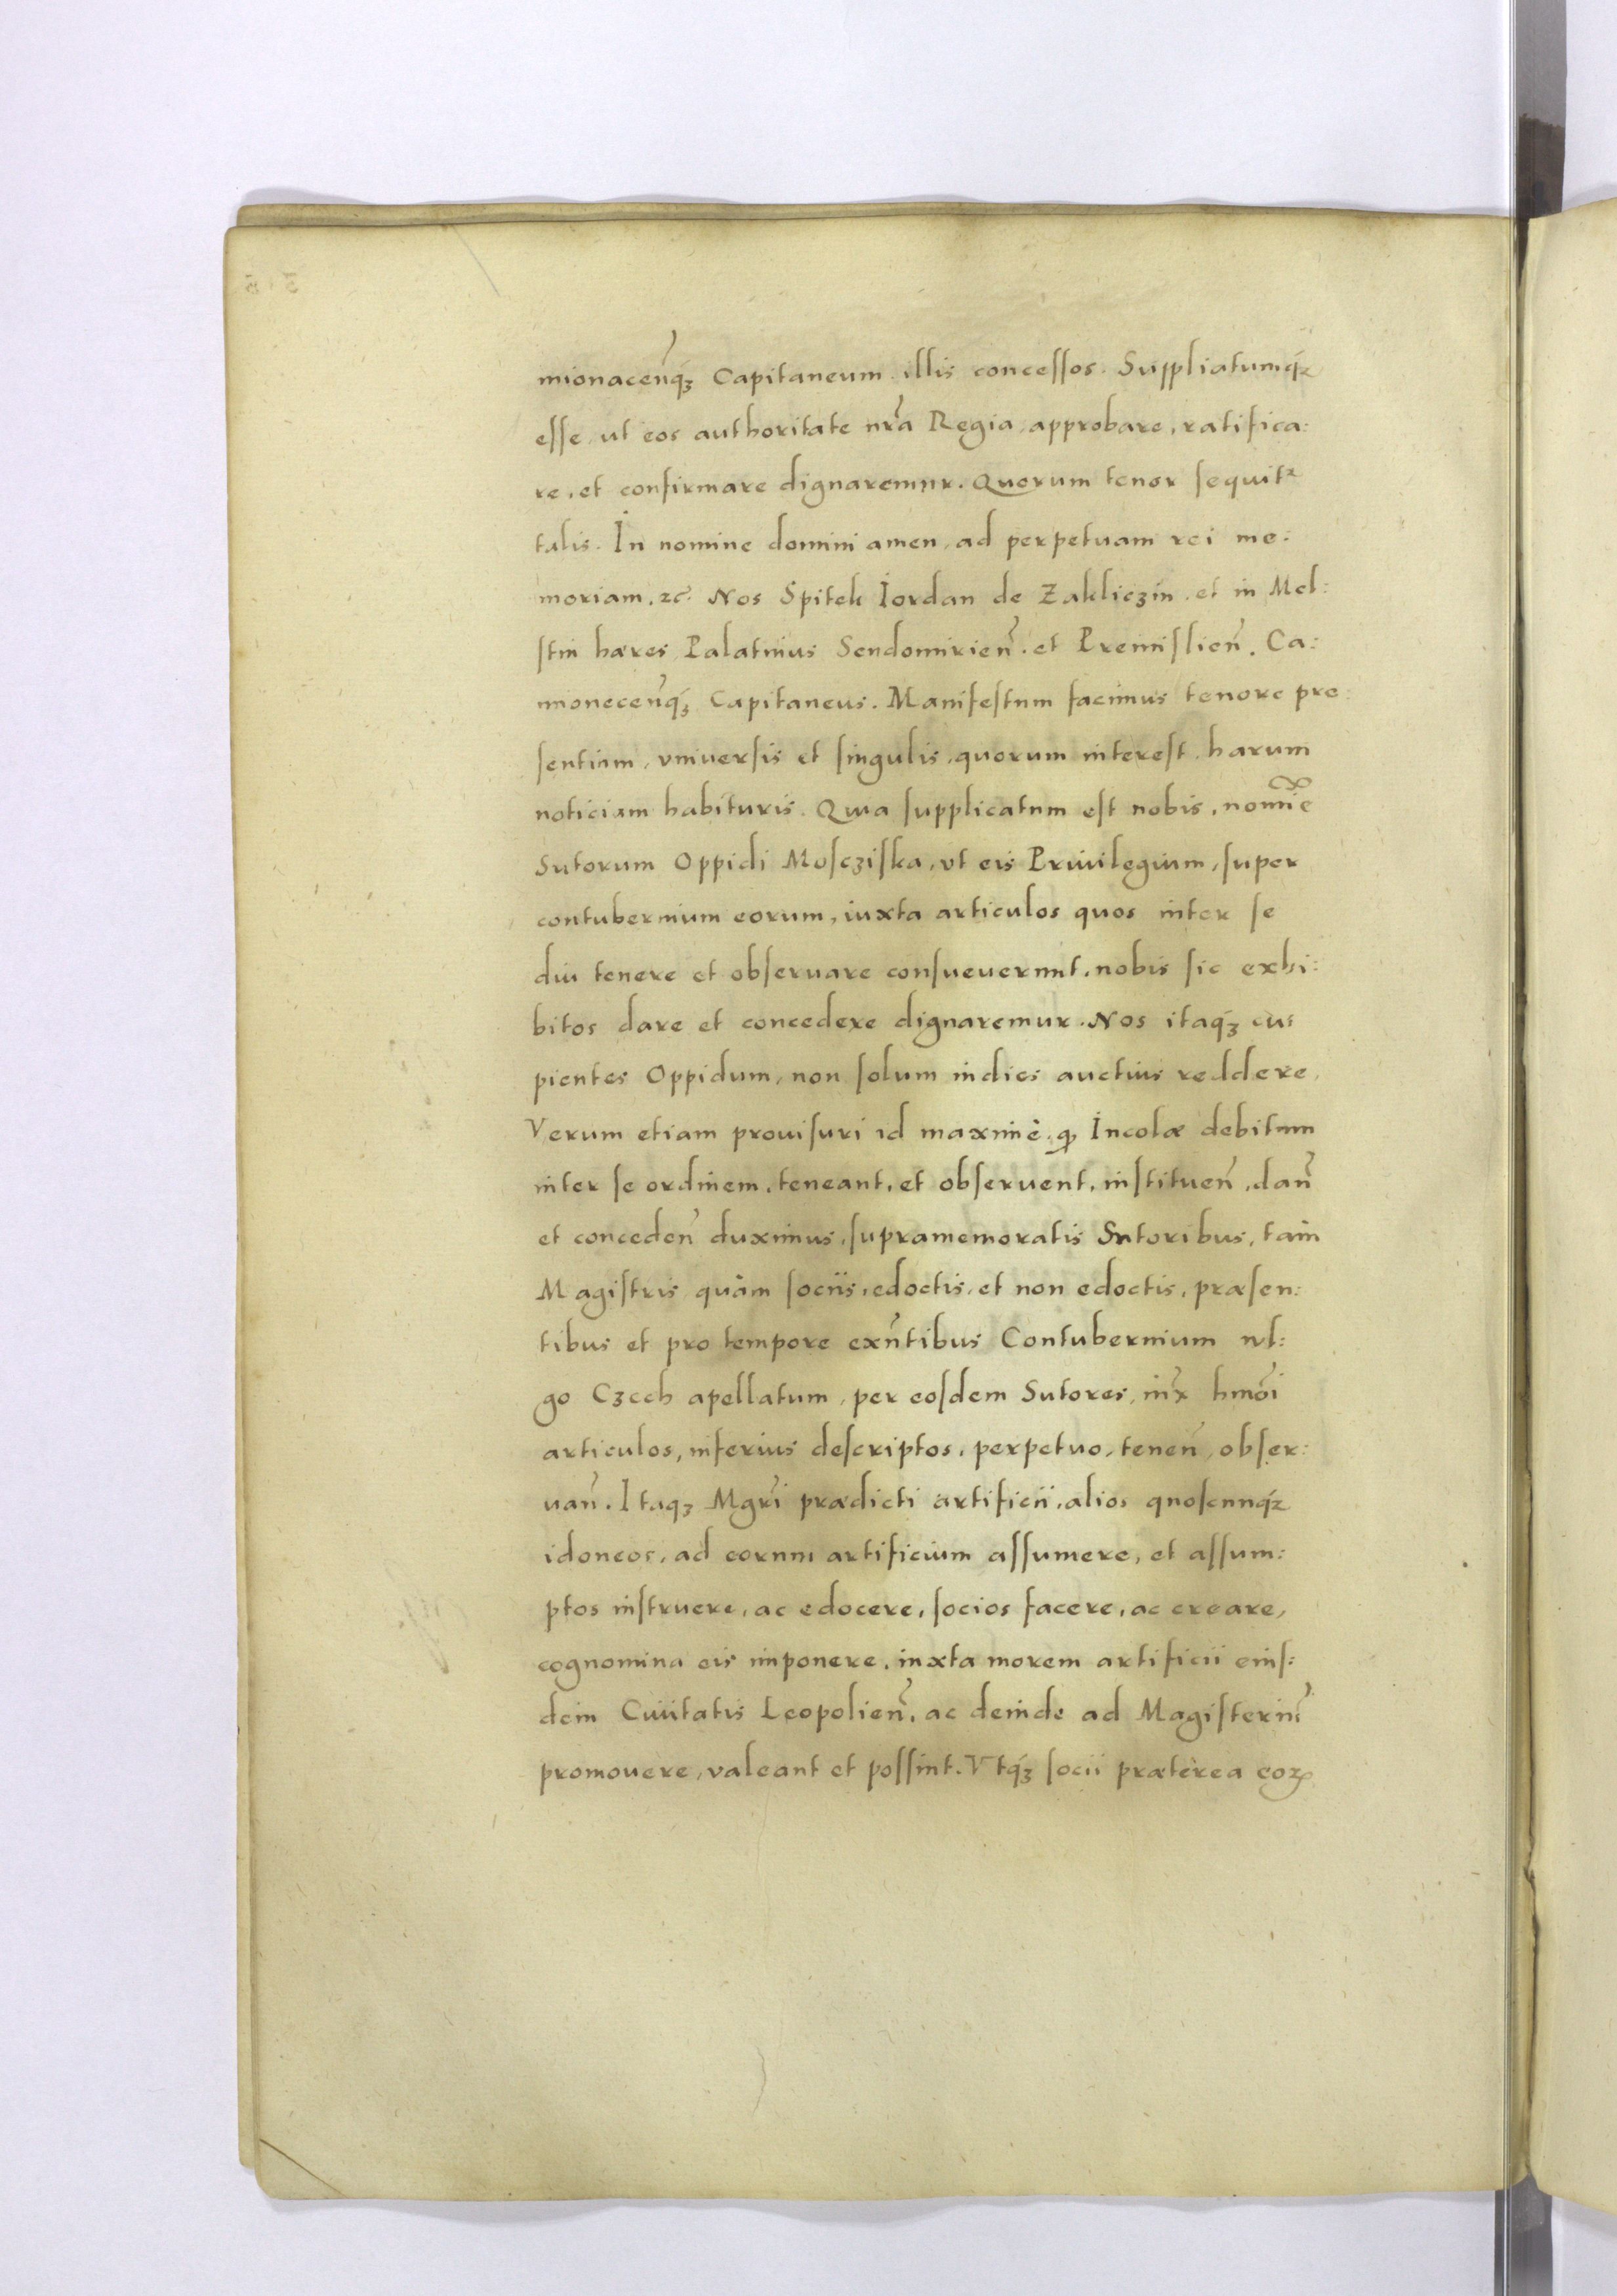 mionacen̄q́ꝫ Capitaneum illis conceſſos. Suppliatumq́ꝫ
eſſe, ut eos authoritate nr̄a Regia, approbare, ratifica:
re, et confirmare dignaremur. Quorum tenor ſequitᷣ
talis. In nomine domini amen, ad perpetuam rei me:
moriam, ⁊c̃. Nos Spitek Iordan de Zakliczin, et in Mel:
ſtin hæres, Palatinus Sendomirien̄. et Premiſlien̄. Ca:
mionecen̄q́ꝫ Capitaneus. Manifeſtum facimus tenore pre:
ſentium, vniuerſis et ſingulis, quorum intereſt, harum
noticiam habituris. Quia ſupplicatum eſt nobis, nomīe
Sutorum Oppidi Moſcziſka, vt eis Priuilegium, ſuper
contubernium eorum, iuxta articulos quos inter ſe
diu tenere et obſeruare conſueuerunt, nobis ſic exhi:
bitos dare et concedere dignaremur. Nos itaq́ꝫ cu:
pientes Oppidum, non ſolum indies auctius reddere,
Verum etiam prouiſuri id maximè, ꝙ Incolæ debitum
inter ſe ordinem, teneant, et obſeruent, inſtituen̄, dan̄
et conceden̄ duximus, ſupramemoratis Sutoribus, tam
Magiſtris quàm ſociis, edoctis, et non edoctis, præſen:
tibus et pro tempore exn̄tibus Contubernium vul:
go Czech apellatum, per eoſdem Sutores, iux̄ hmōi
articulos, inferius deſcriptos, perpetuo, tenen̄, obſer:
uan̄. Itaqꝫ Mgr̄i prædicti artificii, alios quoſcunq́ꝫ
idoneos, ad eorum artificium aſſumere, et aſſum:
ptos inſtruere, ac edocere, ſocios facere, ac creare,
cognomina eis imponere, iuxta morem artificii eiuſ:
dem Ciuitatis Leopolien̄, ac deinde ad Magiſteriū
promouere, valeant et poſſint. Vtq́ꝫ ſocii prætèrea eoꝝ